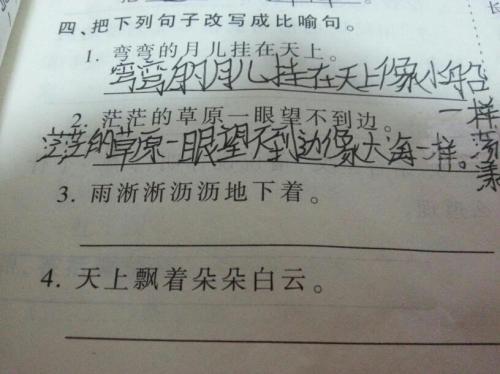 四、把下列句子改写成比喻句。
1. 弯弯的月儿挂在天上。
弯弯的月儿挂在天上像小船
一样
2. 茫茫的草原一眼望不到边。
茫茫的草原一眼望不到边像大海一样。
3. 雨淅淅沥沥地下着。
4. 天上飘着朵朵白云。